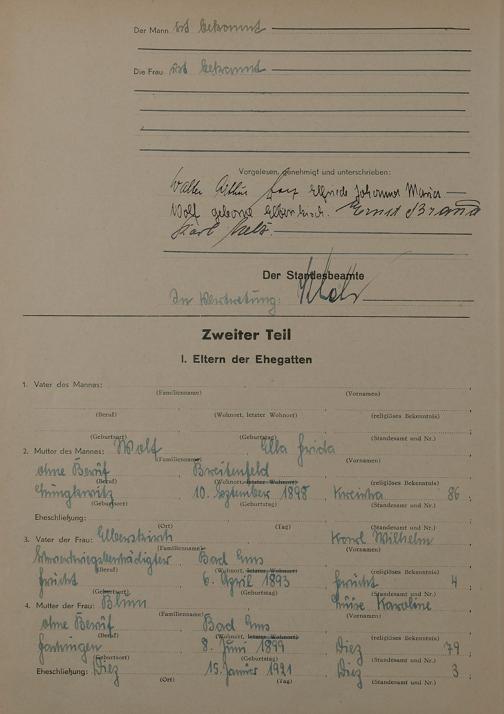 Der Mann ist bekannt
Die Frau ist bekannt
Vorgelesen, genehmigt und unterschrieben:
Walter Elfriede Johanna Maria
Wolf geborene Elberskirch. Ernst Brand
Karl
Der Standesbeamte
In Vertretung:
Zweiter Teil
I. Eltern der Ehegatten
1. Vater des Mannes:
(Familienname) (Vornamen)
(Beruf) (Wohnort, letzter Wohnort) (religiöses Bekenntnis)
(Geburtsort) (Geburtstag) (Standesamt und Nr.)
2. Mutter des Mannes: Wolf Ella Frida
(Familienname) (Vornamen)
ohne Beruf Breitenfeld
(Beruf) (Wohnort, letzter Wohnort) (religiöses Bekenntnis)
Lungkwitz 10. September 1898 Kreischa 86
(Geburtsort) (Geburtstag) (Standesamt und Nr.)
Eheschließung:
(Ort) (Tag) (Standesamt und Nr.)
3. Vater der Frau: Elberskirch Karl Wilhelm
(Familienname) (Vornamen)
Bad Ems
(Beruf) (Wohnort, letzter Wohnort) (religiöses Bekenntnis)
6. April 1893 4
(Geburtsort) (Geburtstag) (Standesamt und Nr.)
4. Mutter der Frau: Blum Luise Karoline
(Familienname) (Vornamen)
ohne Beruf Bad Ems
(Beruf) (Wohnort, letzter Wohnort) (religiöses Bekenntnis)
8. Juni 1899 Diez 79
(Geburtsort) (Geburtstag) (Standesamt und Nr.)
Eheschließung: Diez 15. Januar 1921 Diez 3
(Ort) (Tag) (Standesamt und Nr.)